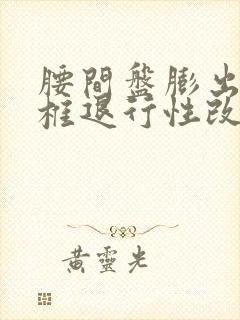 腰間盤膨出
框退行性改
黃靈光